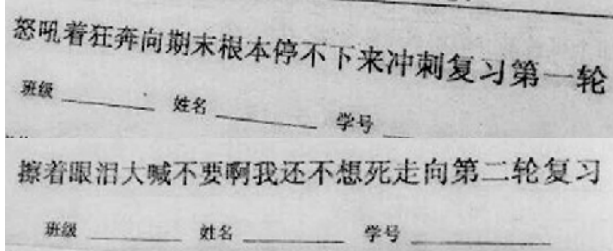 怒吼着狂奔向期末根本停不下来冲刺复习第一轮
班级 姓名 学号
擦着眼泪大喊不要啊我还不想死走向第二轮复习
班级 姓名 学号